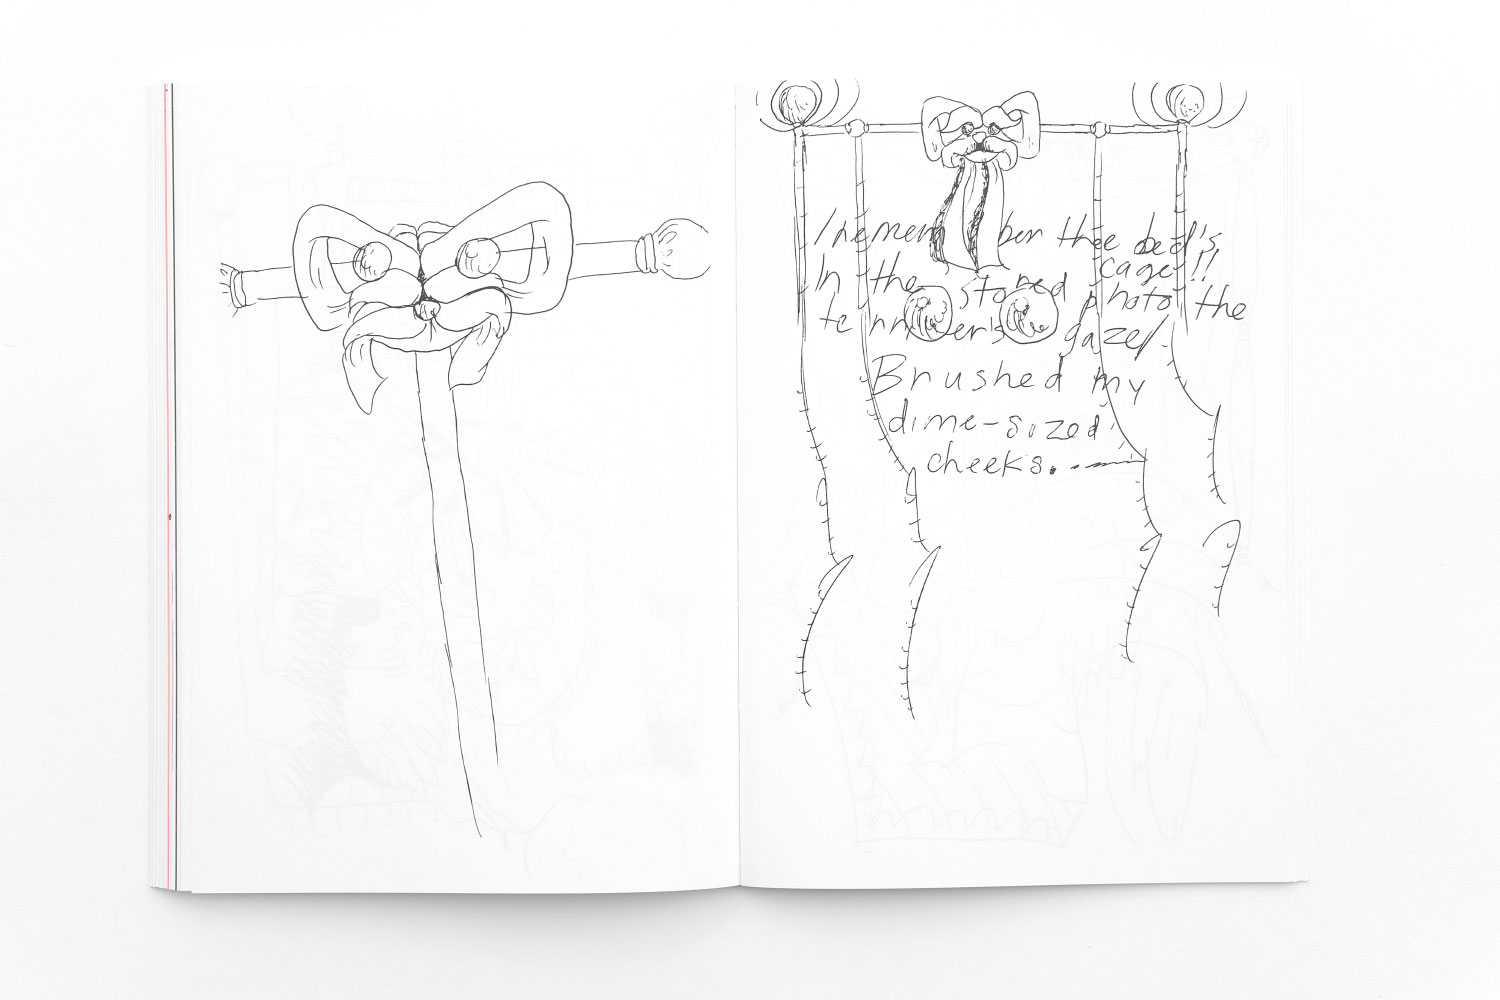 I remember thee bed's
cage!!
In the stored photo the
terrier's gaze
Brushed my
dime-sized
cheeks.